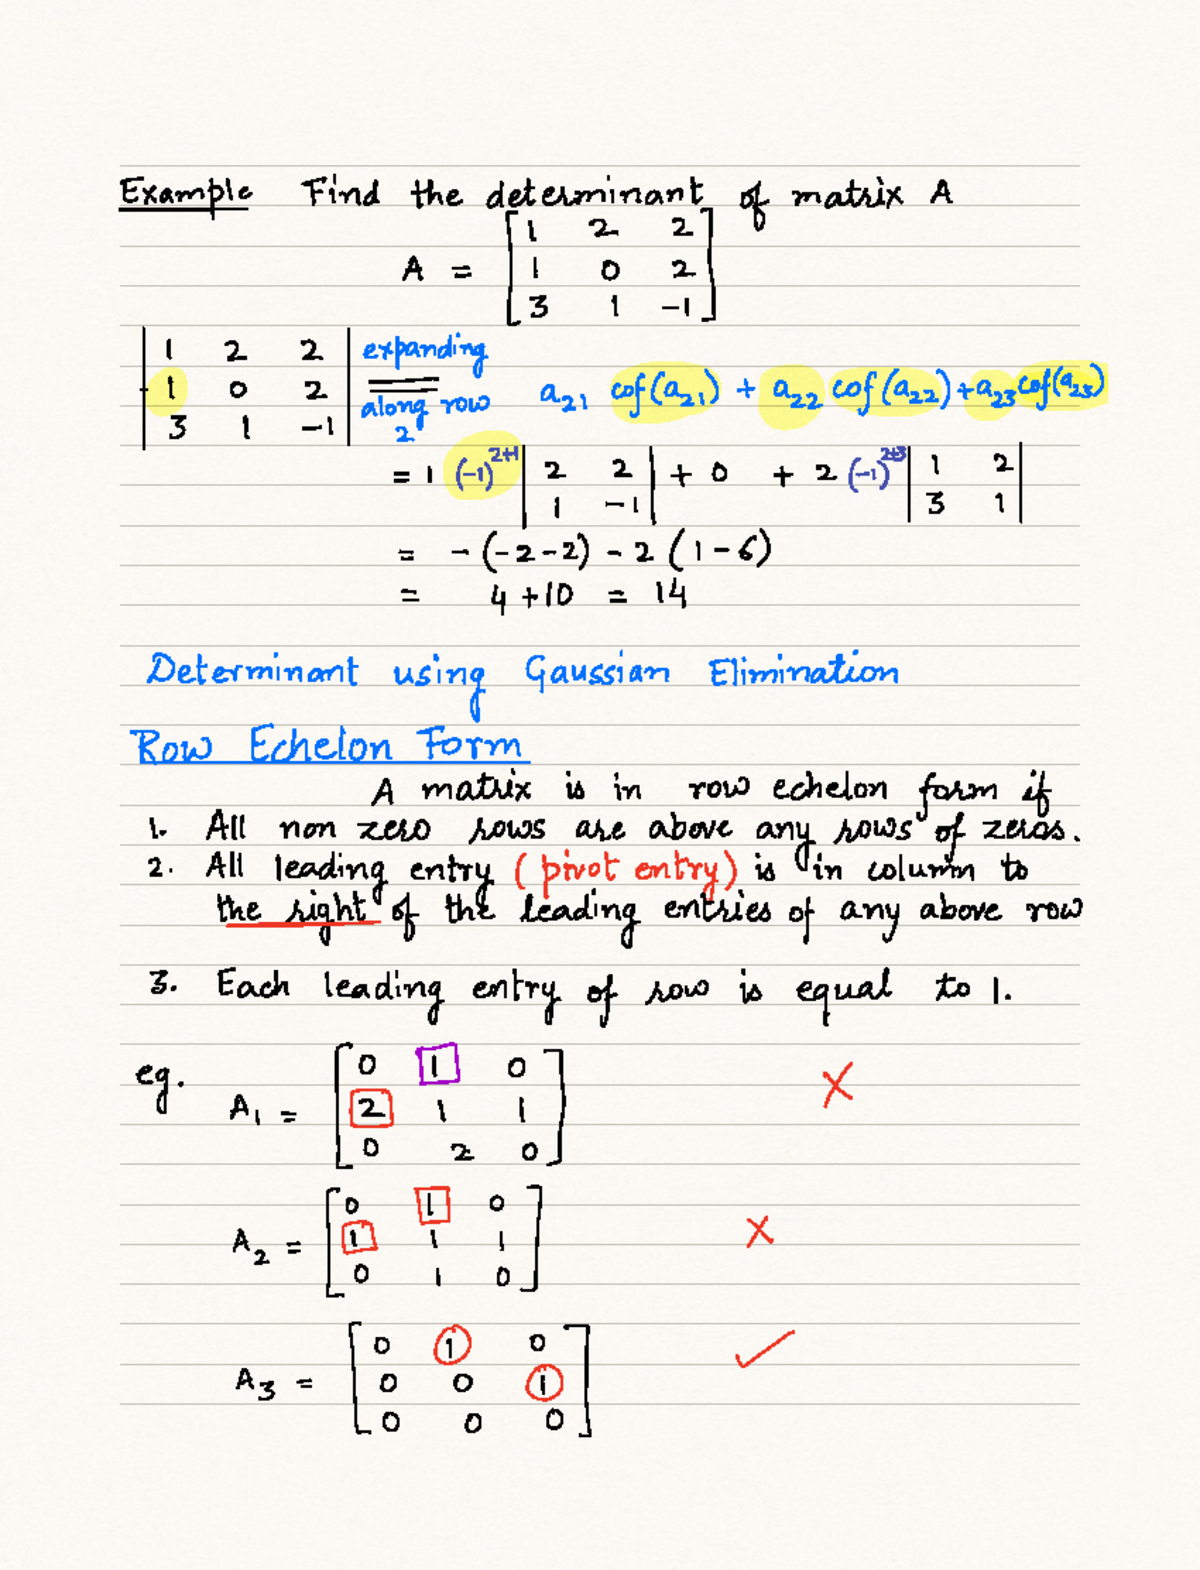 Example Find the determinant of matrix A
A = [ 1 2 2
1 0 2
3 1 -1 ]
| 1 2 2 | expanding
| 1 0 2 | = a21 cof(a21) + a22 cof(a22) + a23 cof(a23)
| 3 1 -1 | along row 2
= 1 (-1)^2+1 | 2 2 | + 0 + 2 (-1)^2+3 | 1 2 |
| 1 -1 | | 3 1 |
= -(-2-2) - 2 (1-6)
= 4 + 10 = 14
Determinant using Gaussian Elimination
Row Echelon Form
A matrix is in row echelon form if
1. All non zero rows are above any rows of zeros.
2. All leading entry (pivot entry) is in column to
the right of the leading entries of any above row
3. Each leading entry of row is equal to 1.
eg. A1 = [ 0 1 0 X
2 1 1
0 2 0 ]
A2 = [ 0 1 0 X
1 1 1
0 1 0 ]
A3 = [ 0 1 0 ✓
0 0 1
0 0 0 ]